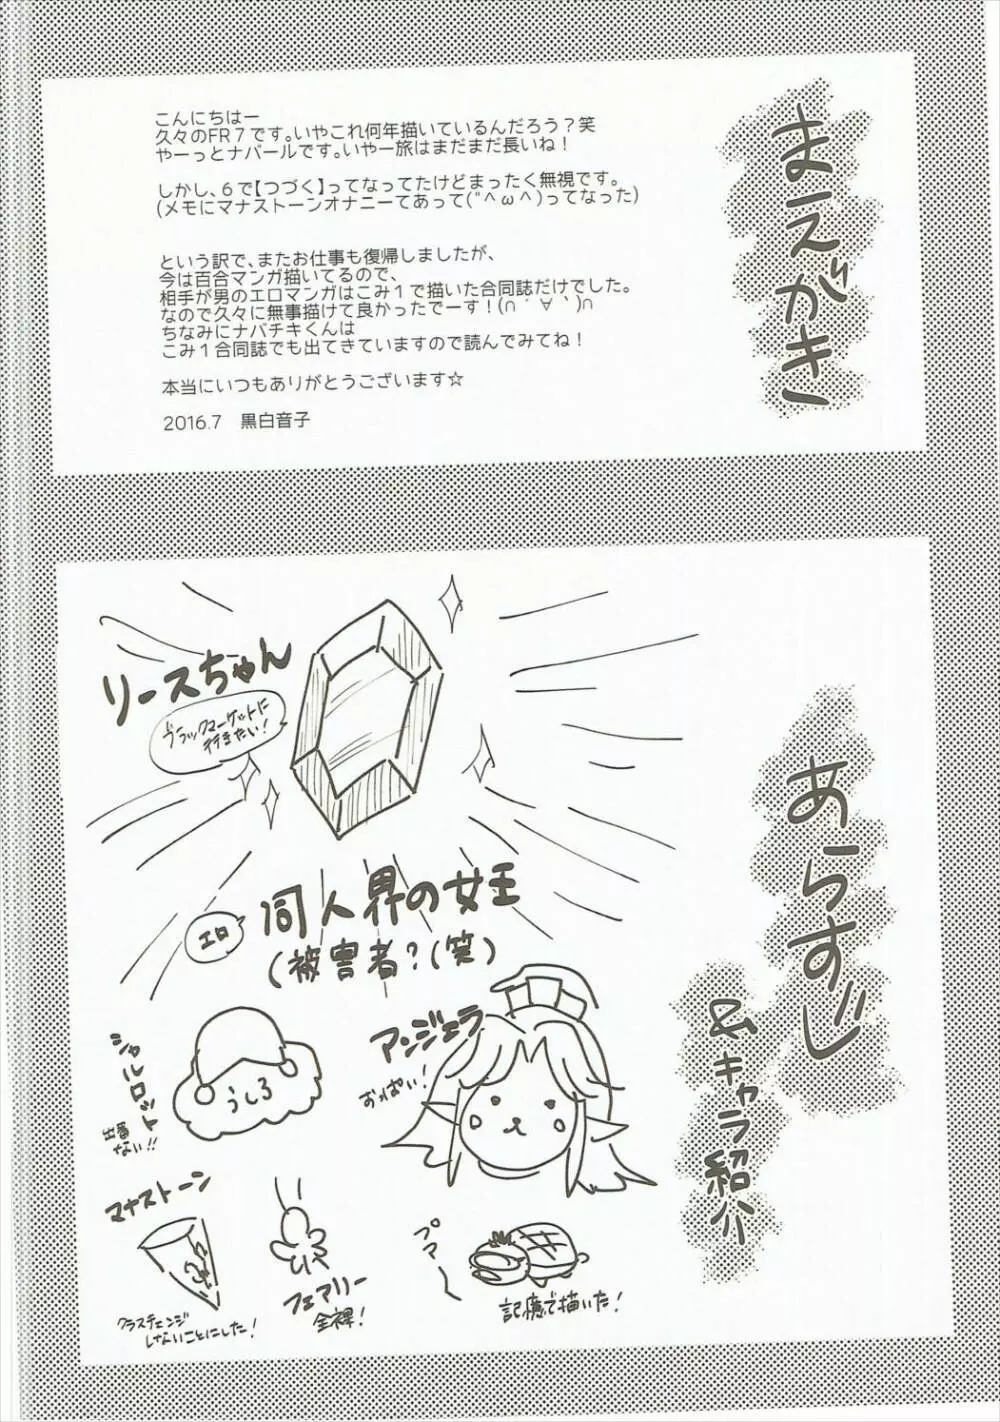 まえがき
こんにちはー
久々のFR7です。いやこれ何年描いているんだろう？笑
やーっとナバールです。いやー旅はまだまだ長いね！
しかし、6で【つづく】ってなってたけどまったく無視です。
(メモにマナストーンオナニーてあって("^ω^)ってなった)
という訳で、またお仕事も復帰しましたが、
今は百合マンガ描いてるので、
相手が男のエロマンガはこみ1で描いた合同誌だけでした。
なので久々に無事描けて良かったでーす！(∩´∀`)∩
ちなみにナバチキくんは
こみ1合同誌でも出てきていますので読んでみてね！
本当にいつもありがとうございます☆
2016.7　黒白音子
あらすじ
&キャラ紹介
リースちゃん
ブラックマーケットに
行きたい！
エロ
同人界の女王
(被害者？(笑)
アンジェラ
おっぱい！
シャルロット
出番
ない!!
うしろ
マナストーン
クラスチェンジ
しないことにした！
フェアリー
全裸！
ブマー
記憶で描いた！